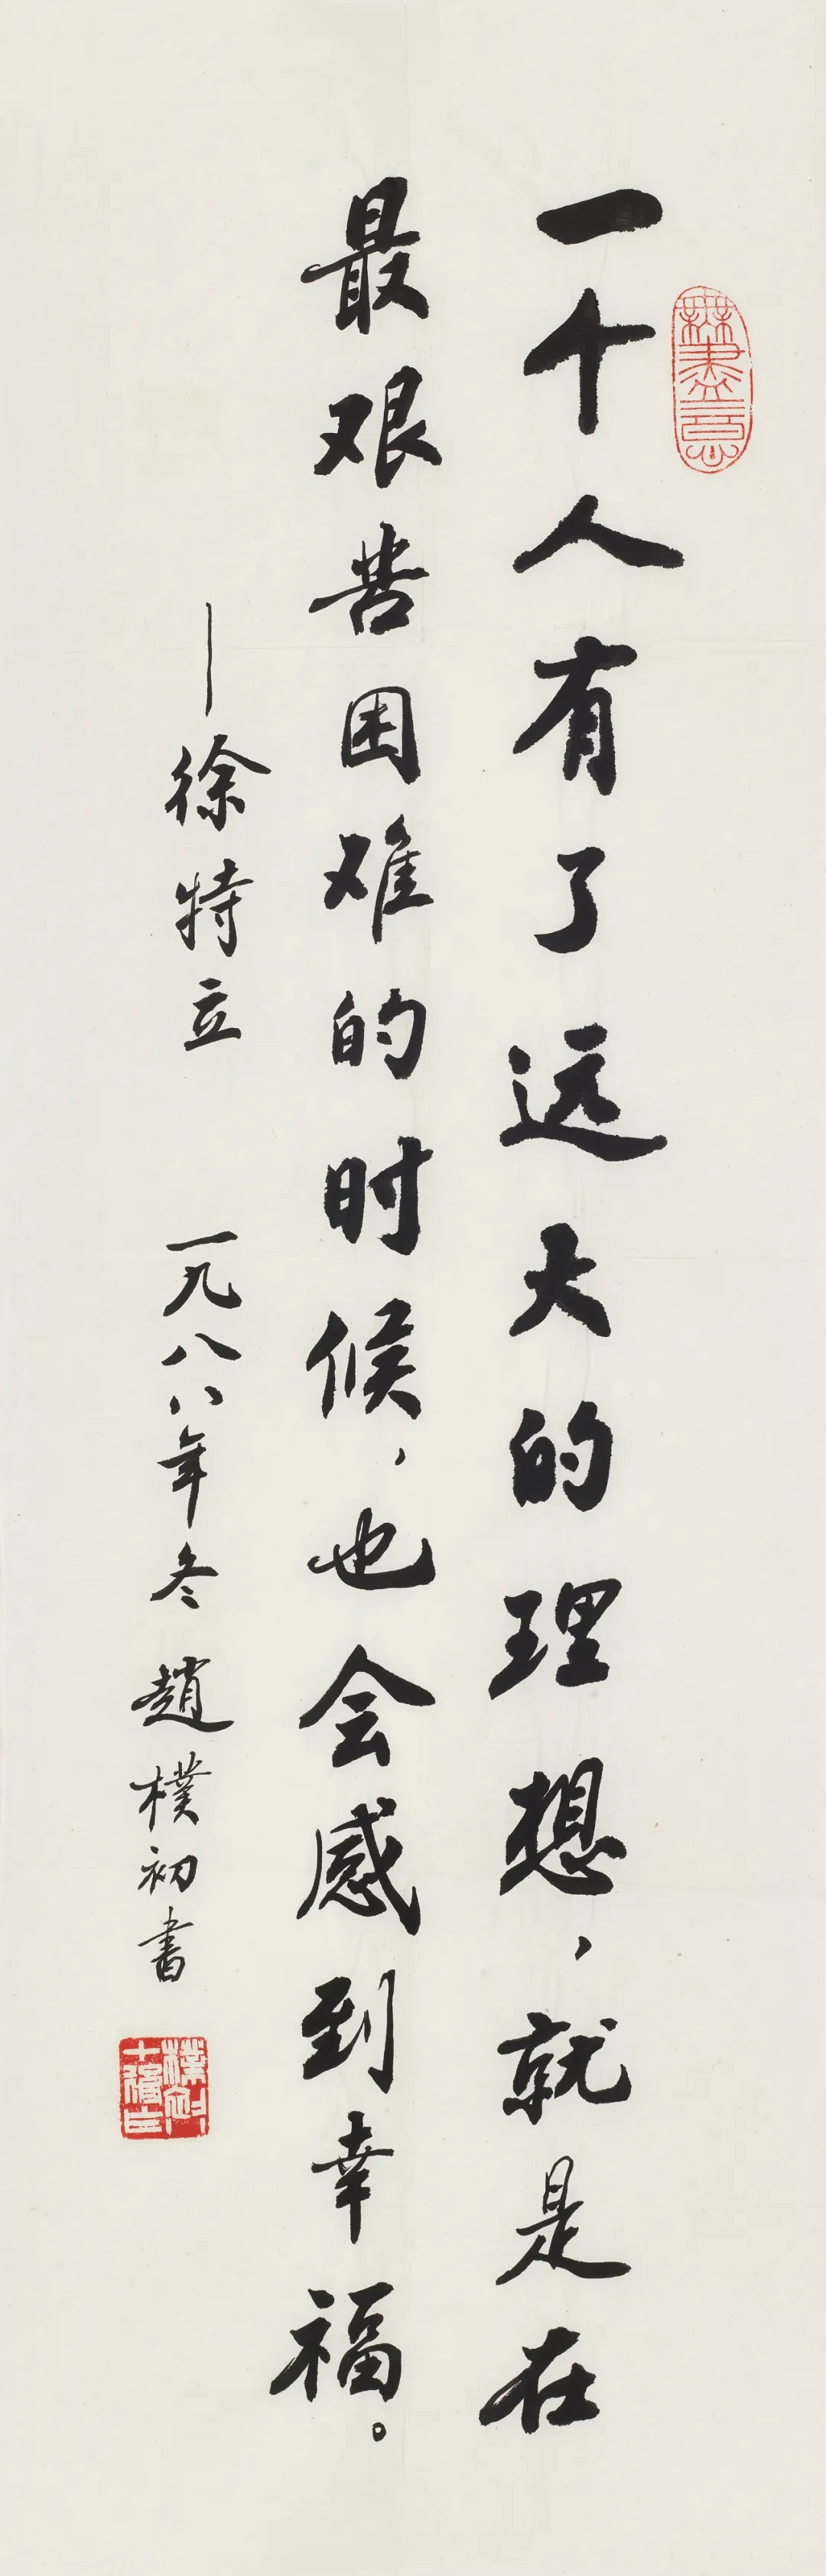 一个人有了远大的理想，就是在
最艰苦困难的时候，也会感到幸福。
——徐特立 一九八八年冬 趙樸初書
無盡意